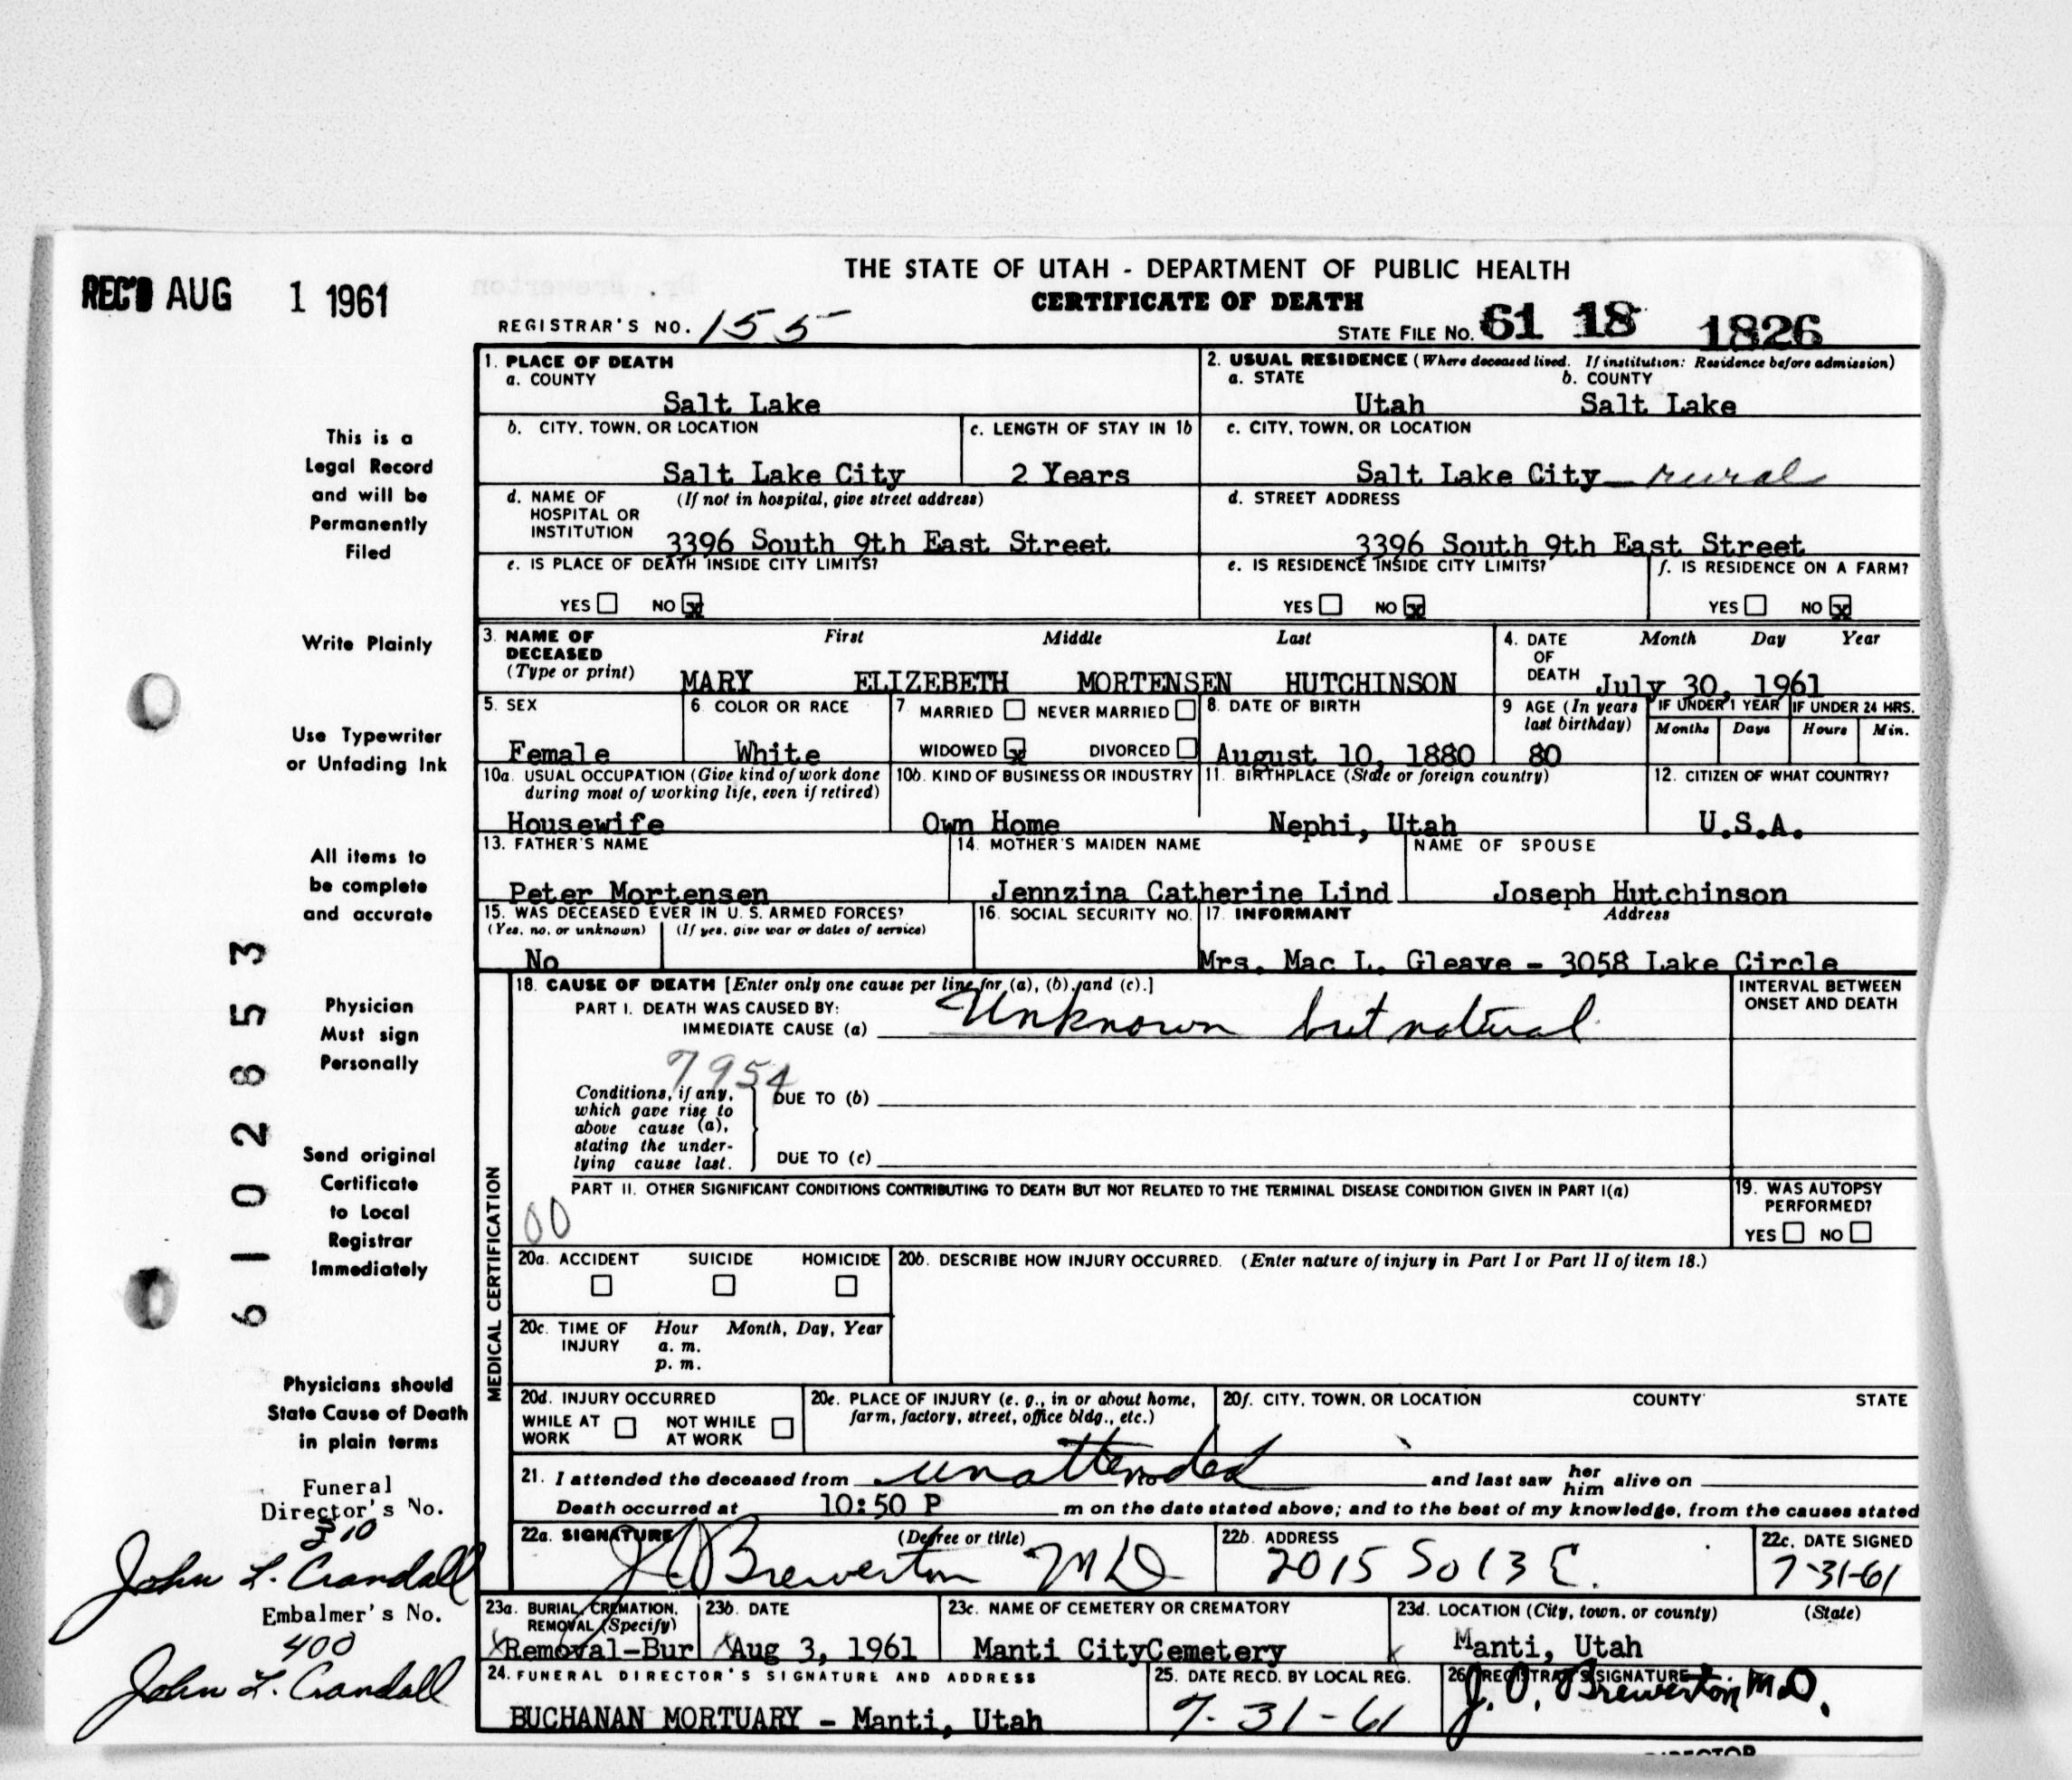 THE STATE OF UTAH - DEPARTMENT OF PUBLIC HEALTH
CERTIFICATE OF DEATH
REC'D AUG 1 1961
REGISTRAR'S NO. 155
STATE FILE NO. 61 18 1826
1. PLACE OF DEATH
a. COUNTY
Salt Lake
2. USUAL RESIDENCE (Where deceased lived. If institution: Residence before admission)
a. STATE b. COUNTY
Utah Salt Lake
b. CITY, TOWN, OR LOCATION
Salt Lake City
c. LENGTH OF STAY IN 1b
2 Years
c. CITY, TOWN, OR LOCATION
Salt Lake City rural
d. NAME OF (If not in hospital, give street address)
HOSPITAL OR
INSTITUTION 3396 South 9th East Street
d. STREET ADDRESS
3396 South 9th East Street
e. IS PLACE OF DEATH INSIDE CITY LIMITS?
YES NO x
e. IS RESIDENCE INSIDE CITY LIMITS?
YES NO x
f. IS RESIDENCE ON A FARM?
YES NO x
3. NAME OF First Middle Last
DECEASED
(Type or print) MARY ELIZEBETH MORTENSEN HUTCHINSON
4. DATE Month Day Year
OF
DEATH July 30, 1961
5. SEX
Female
6. COLOR OR RACE
White
7 MARRIED NEVER MARRIED
WIDOWED x DIVORCED
8. DATE OF BIRTH
August 10, 1880
9 AGE (In years
last birthday)
80
IF UNDER 1 YEAR IF UNDER 24 HRS.
Months Days Hours Min.
10a. USUAL OCCUPATION (Give kind of work done
during most of working life, even if retired)
Housewife
10b. KIND OF BUSINESS OR INDUSTRY
Own Home
11. BIRTHPLACE (State or foreign country)
Nephi, Utah
12. CITIZEN OF WHAT COUNTRY?
U.S.A.
13. FATHER'S NAME
Peter Mortensen
14. MOTHER'S MAIDEN NAME
Jennzina Catherine Lind
NAME OF SPOUSE
Joseph Hutchinson
15. WAS DECEASED EVER IN U. S. ARMED FORCES?
(Yes, no, or unknown) (If yes, give war or dates of service)
No
16. SOCIAL SECURITY NO.
17. INFORMANT Address
Mrs. Mac L. Gleave - 3058 Lake Circle
18. CAUSE OF DEATH [Enter only one cause per line for (a), (b), and (c).]
PART I. DEATH WAS CAUSED BY:
IMMEDIATE CAUSE (a) Unknown but natural
INTERVAL BETWEEN
ONSET AND DEATH
7954
Conditions, if any,
which gave rise to
above cause (a),
stating the under-
lying cause last.
DUE TO (b)
DUE TO (c)
PART II. OTHER SIGNIFICANT CONDITIONS CONTRIBUTING TO DEATH BUT NOT RELATED TO THE TERMINAL DISEASE CONDITION GIVEN IN PART I(a)
00
19. WAS AUTOPSY
PERFORMED?
YES NO
MEDICAL CERTIFICATION
20a. ACCIDENT SUICIDE HOMICIDE
20b. DESCRIBE HOW INJURY OCCURRED. (Enter nature of injury in Part I or Part II of item 18.)
20c. TIME OF Hour Month, Day, Year
INJURY a. m.
p. m.
20d. INJURY OCCURRED
WHILE AT NOT WHILE
WORK AT WORK
20e. PLACE OF INJURY (e. g., in or about home,
farm, factory, street, office bldg., etc.)
20f. CITY, TOWN, OR LOCATION COUNTY STATE
21. I attended the deceased from unattended to and last saw her him alive on
Death occurred at 10:50 P m on the date stated above; and to the best of my knowledge, from the causes stated
22a. SIGNATURE (Degree or title)
J O Brewerton MD
22b. ADDRESS
2015 So 13 E.
22c. DATE SIGNED
7-31-61
23a. BURIAL, CREMATION,
REMOVAL (Specify)
Removal-Bur
23b. DATE
Aug 3, 1961
23c. NAME OF CEMETERY OR CREMATORY
Manti CityCemetery
23d. LOCATION (City, town, or county) (State)
Manti, Utah
24. FUNERAL DIRECTOR'S SIGNATURE AND ADDRESS
BUCHANAN MORTUARY - Manti, Utah
25. DATE RECD. BY LOCAL REG.
7-31-61
26. REGISTRAR'S SIGNATURE
J. O. Brewerton M.D.
This is a
Legal Record
and will be
Permanently
Filed
Write Plainly
Use Typewriter
or Unfading Ink
All items to
be complete
and accurate
Physician
Must sign
Personally
Send original
Certificate
to Local
Registrar
Immediately
Physicians should
State Cause of Death
in plain terms
6102853
Funeral
Director's No.
310
John L. Crandall
Embalmer's No.
400
John L. Crandall